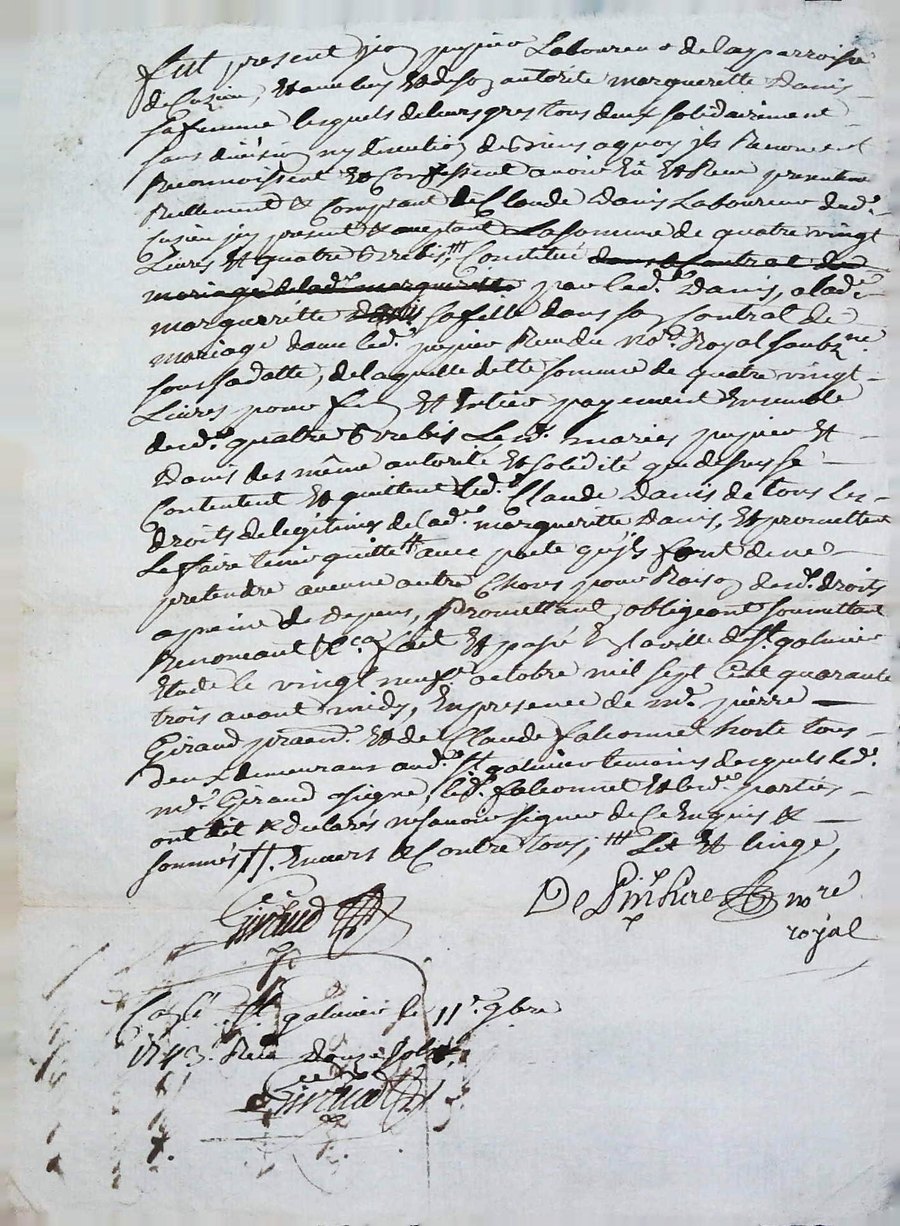 fut present jean pupier Laboureur de la parroisse
de Cuzieu, Et avec luy Et de son autorité margueritte Danis
sa femme lesquels de leurs gres tous deux solidairement
sans division ny discution de biens a quoy ils Renoncent
Reconnoissent Et Confessent avoir Eü Et Receu presentem
Reellement & Comptant de Claude Danis Laboureur dud.
Cusieu jcy present & acceptant La somme de quatre vingt
Livres Et quatre brebis, Constitué dans le contrat de
mariage de lad. margueritte par led. Danis, a lade
marguerritte Danis sa fille dans son Contrat de
mariage avec led. pupier Receu du no.re Royal soubz.ne
sous sa datte, de laquelle dette somme de quatre vingt
Livres pour fin Et Entier payement Ensemble
desd. quatre brebis Lesd. mariés pupier Et
Danis des même autorité Et solidité que dessus se
Contentent Et quittent led. Claude Danis de tous Les
droits de legitime de lad. marguerritte Danis, Et promettent
Le faire tenir quitte avec pacte qu'ils font de ne
pretendre aucune autre Chose pour Raison desd. droits
a peine de depens, promettant, obligeant soumettant
Renoncant &c.a fait Et passé En la ville de St. galmier
Etude le vingt neuf octobre mil sept Cent quarante
trois avant midy, En presence de m.e pierre
Giraud pratn. Et de Claude falconnet hoste tous
deux demeurans aud. St galmier temoins desquels led.
m.e Giraud signé, led. falconnet Et lesd. parties
ont dit & declarés ne savoir signer de Ce Enquis &
sommés. Envers & Contre tous; Lit Et linge,
Giraud
De Pinhire no.re
royal
Con.lé St galmier le 11.e 9bre
1743. Receu douze sols
Giraud